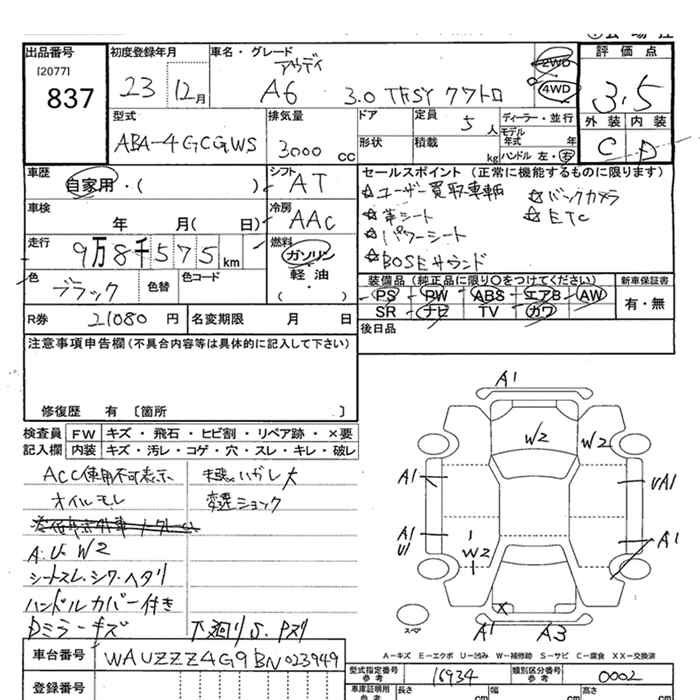 出品番号
[2077]
837
初度登録年月
23 12月
車名・グレード
アウディ
A6 3.0 TFSI クワトロ
2WD
4WD
評価点
3.5
外装 内装
C D
型式
ABA-4GCGWS
排気量
3000 CC
ドア
形状
定員
5 人
積載
kg
ディーラー・並行
モデル年式 年
ハンドル 左・右
車歴
自家用・( )
シフト
AT
車検
年 月( 日)
冷房
AAC
走行
9万8千575km
燃料
ガソリン
軽・油
( )
色
ブラック
色替
色コード
セールスポイント (正常に機能するものに限ります)
☆ユーザー買取車輌 ☆バックカメラ
☆革シート ☆ETC
☆パワーシート
☆BOSEサウンド
装備品 (純正品に限り○をつけてください)
PS PW ABS エアB AW
SR ナビ TV カワ
新車保証書
有・無
R券 21080円
名変期限 月 日
後日品
注意事項申告欄(不具合内容等は具体的に記入して下さい)
修復歴 有 [箇所 .]
検査員 FW キズ・飛石・ヒビ割・リペア跡・×要
記入欄 内装 キズ・汚レ・コゲ・穴・スレ・キレ・破レ
ACC使用不可表示
オイルモレ
変速ショック
A.U W2
シートスレ.シワ.ヘタリ
ハンドルカバー付き
Dミラーキズ
下廻りS.Pスリ
A1
W2 W2
A1 UA1
A1 U1 W2 A1
X
スペア
A1 A3
A－キズ E－エクボ U－凹み W－補修跡 S－サビ C－腐食 XX－交換済
車台番号
WAUZZZ4G9BN023949
登録番号
型式指定番号
参考
16934
類別区分番号
参考
0002
車庫証明用
参考
長さ cm
幅 cm
高さ cm